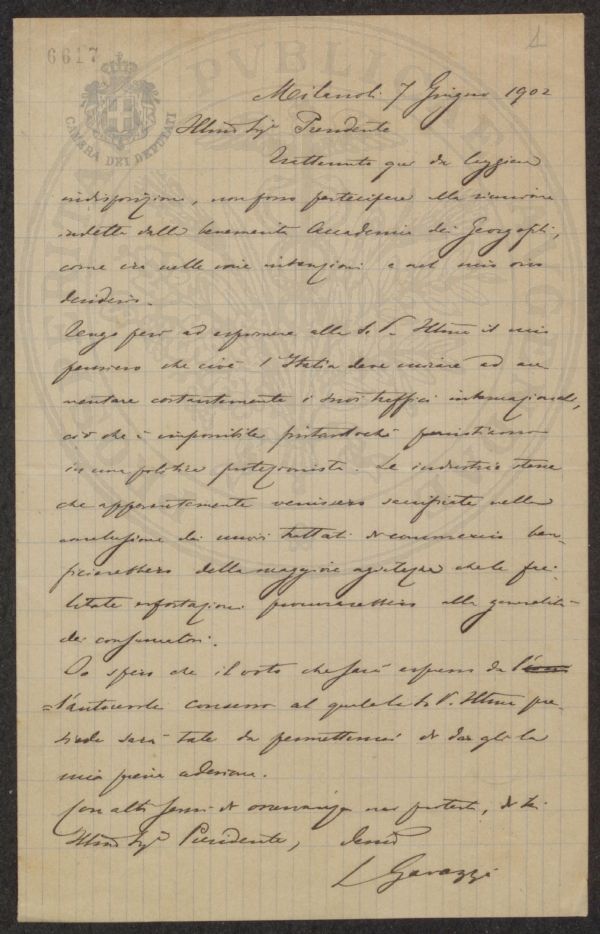 6617
1
CAMERA DEI DEPUTATI
PVBLICAE
Milano li 7 Giugno 1902
Illmo Sigr Presidente
Trattenuto qui da leggiera
indisposizione, non posso partecipare alla riunione
indetta dalla benemerita Accademia dei Georgofili,
come era nelle mie intenzioni e nel mio vivo
desiderio.
Tengo però ad esprimere alla S. V. Illma il mio
pensiero che cioè l'Italia deve mirare ad au
mentare costantemente i suoi traffici internazionali,
ciò che è impossibile fintantochè persistiamo
in una politica protezionista. Le industrie stesse
che apparentemente venissero sacrificate nella
conclusione dei nuovi trattati di commercio ben-
ficierebbero della maggiore agiatezza che le fac-
litate esportazioni procurerebbero alla generalità
dei consumatori.
Io spero che il voto che sarà espresso da
l'autorevole consesso al quale la S. V. Illma pre-
siede sarà tale da permettermi di dargli la
mia piena adesione.
Con alti sensi di osservanza mi protesto, di Lei
Illmo Sigr Presidente, devmo
L Gavazzi